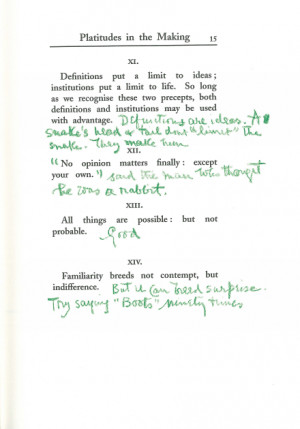 Platitudes in the Making 15
XI.
Definitions put a limit to ideas;
institutions put a limit to life. So long
as we recognise these two precepts, both
definitions and institutions may be used
with advantage. Definitions are ideas. A
snake's head & tail don't "limit" the
snake. They make him
XII.
"No opinion matters finally: except
your own." said the man who thought
he was a rabbit.
XIII.
All things are possible: but not
probable. Good
XIV.
Familiarity breeds not contempt, but
indifference. But it can breed surprise.
Try saying "Boots" ninety times